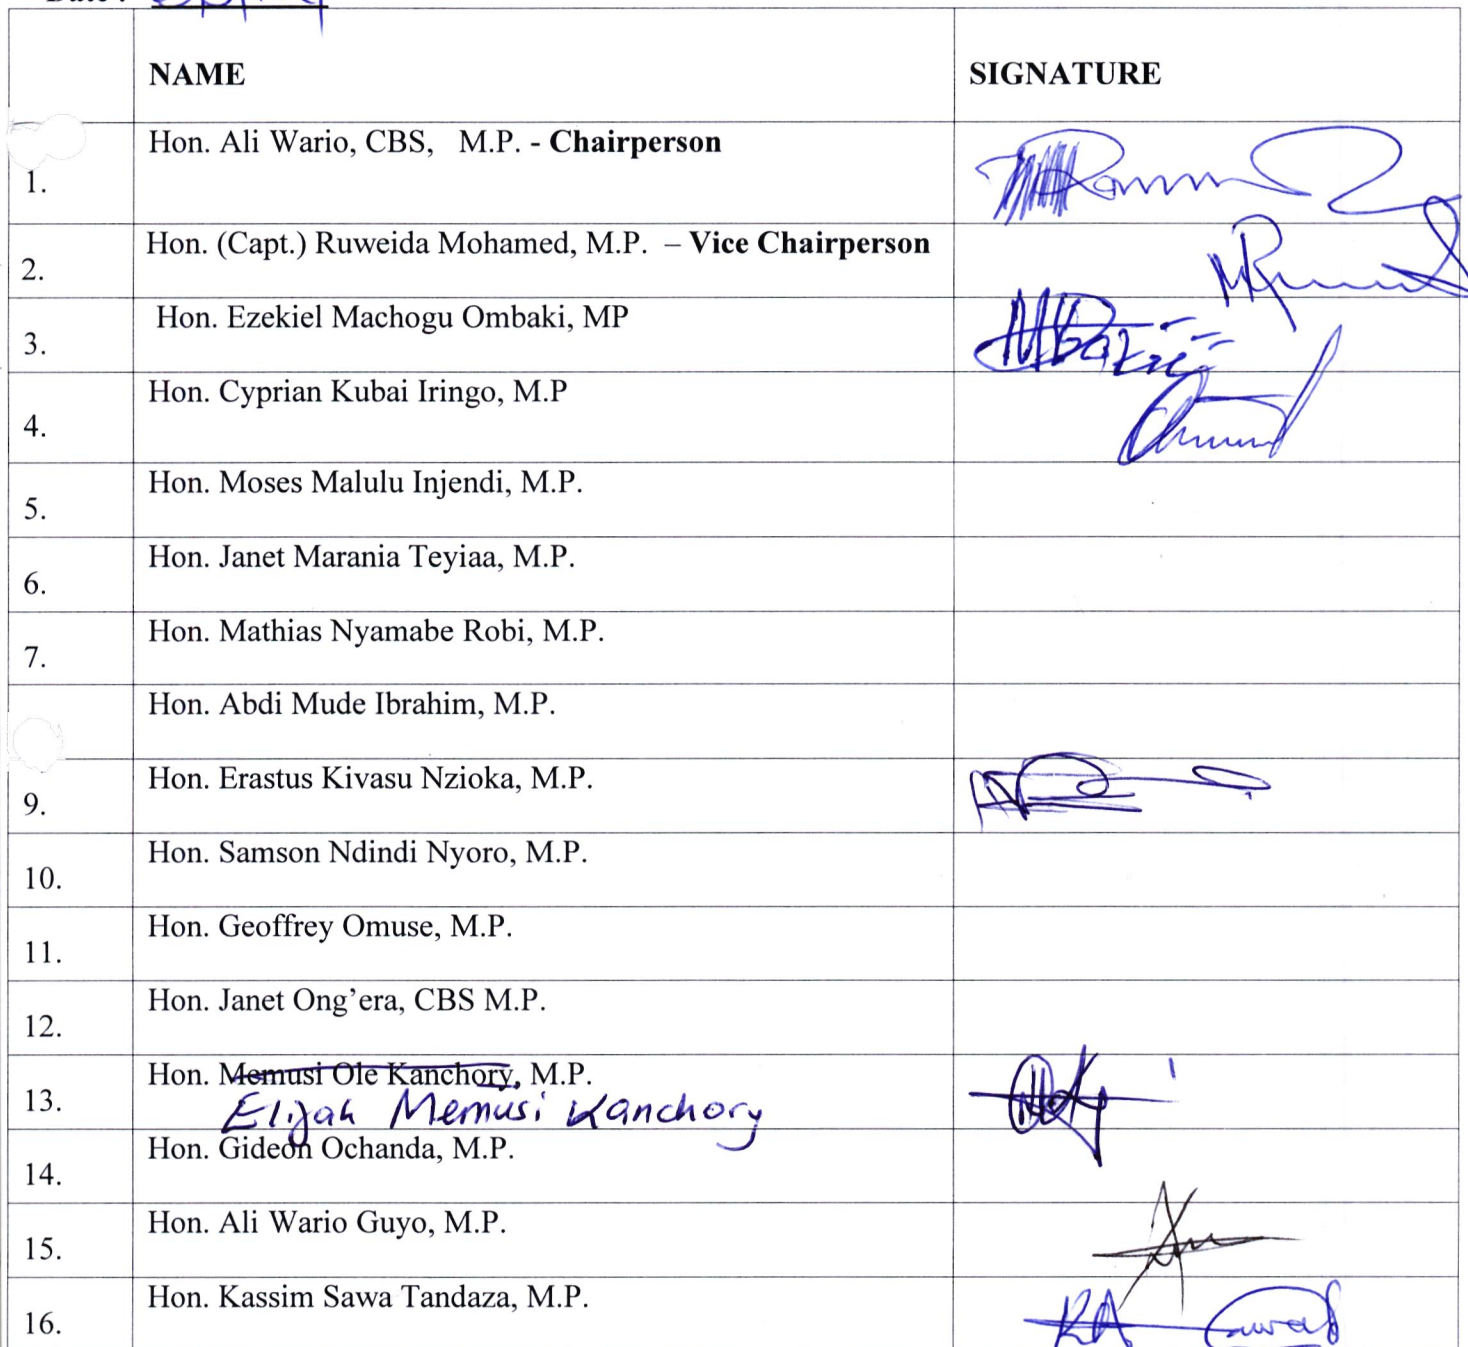 NAME SIGNATURE
1. Hon. Ali Wario, CBS, M.P. - Chairperson
2. Hon. (Capt.) Ruweida Mohamed, M.P. – Vice Chairperson
3. Hon. Ezekiel Machogu Ombaki, MP
4. Hon. Cyprian Kubai Iringo, M.P
5. Hon. Moses Malulu Injendi, M.P.
6. Hon. Janet Marania Teyiaa, M.P.
7. Hon. Mathias Nyamabe Robi, M.P.
Hon. Abdi Mude Ibrahim, M.P.
9. Hon. Erastus Kivasu Nzioka, M.P.
10. Hon. Samson Ndindi Nyoro, M.P.
11. Hon. Geoffrey Omuse, M.P.
12. Hon. Janet Ong’era, CBS M.P.
13. Hon. Memusi Ole Kanchory, M.P.
Elijah Memusi Kanchory
14. Hon. Gideon Ochanda, M.P.
15. Hon. Ali Wario Guyo, M.P.
16. Hon. Kassim Sawa Tandaza, M.P.